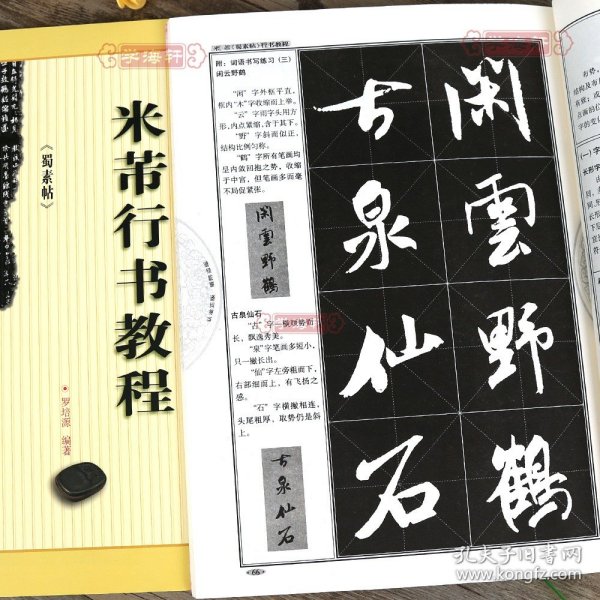 学海轩
米芾行书教程
《蜀素帖》
罗培源 编著
米芾《蜀素帖》行书教程
附:词语书写练习(三)
闲云野鹤
“闲”字外框平直,
框内“木”字收缩而上举。
“云”字雨字头用方
形,内点紧缩,含于其下。
“野”字斜而似正,
结构比例匀称。
“鹤”字所有笔画均
是内敛回抱之势,收缩
于中宫,但笔画多而毫
不局促紧张。
闲雲野鶴
古泉仙石
“古”字一横顺势而
长,飘逸秀美。
“泉”字笔画多短小,
只一撇长出。
“仙”字左旁粗而下,
右部细而上,有飞扬之
感。
“石”字横撇相连,
头尾粗厚,取势仍是斜
上。
古泉仙石
闲雲野鶴
古泉仙石
66
孔夫子旧书网
www.kongfz.com